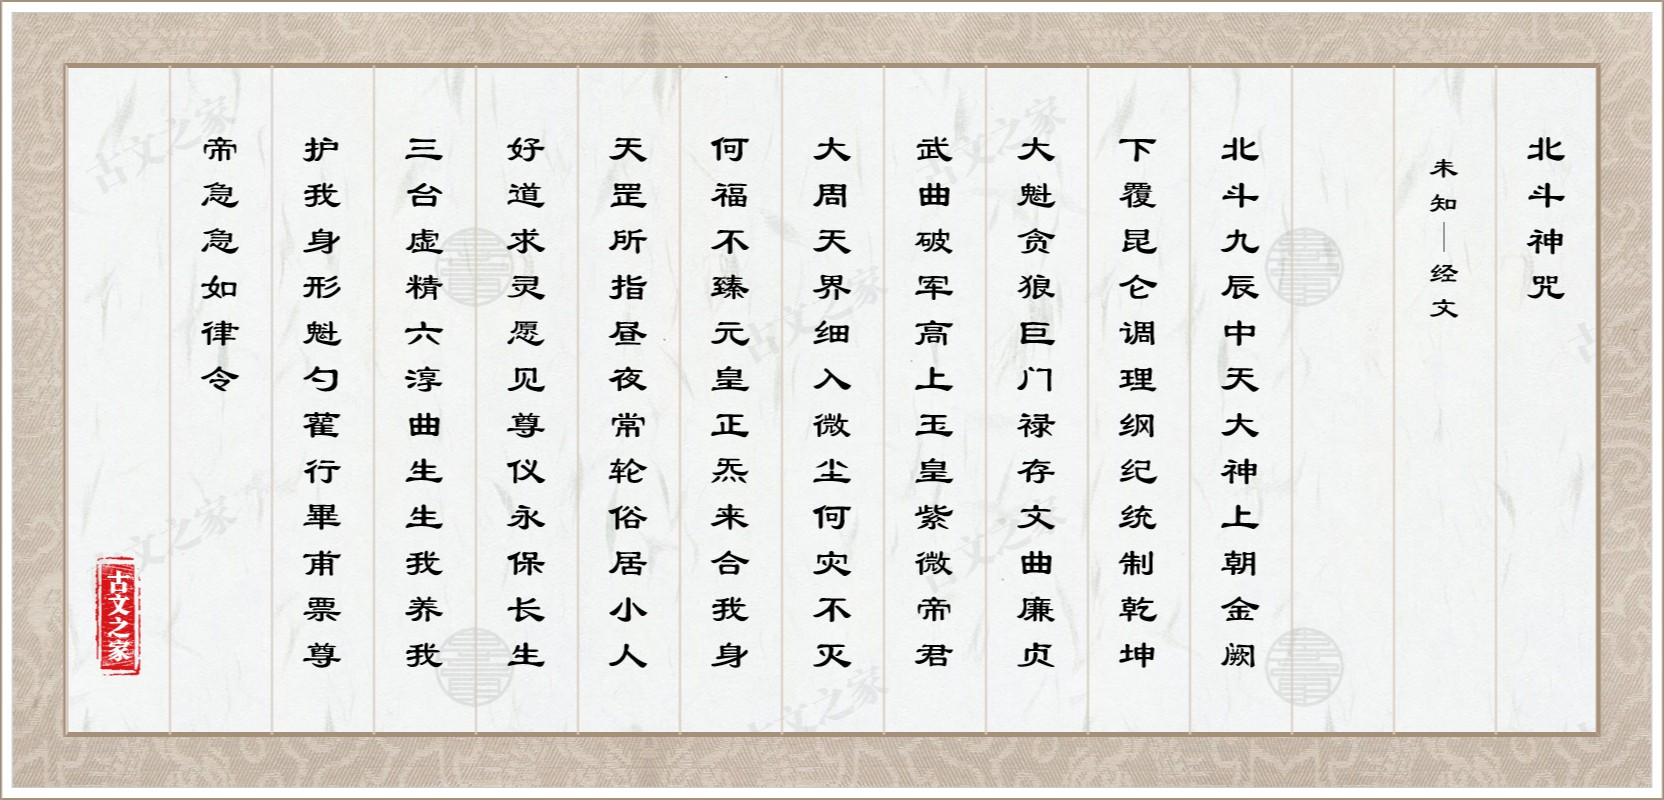 北斗神咒
未知——经文
北斗九辰中天大神上朝金阙
下覆昆仑调理纲纪统制乾坤
大魁贪狼巨门禄存文曲廉贞
武曲破军高上玉皇紫微帝君
大周天界细入微尘何灾不灭
何福不臻元皇正炁来合我身
天罡所指昼夜常轮俗居小人
好道求灵愿见尊仪永保长生
三台虚精六淳曲生生我养我
护我身形魁勺藋行畢甫票尊
帝急急如律令
古文之家
古文之家
古文之家
古文之家
古文之家
古文之家
古文之家